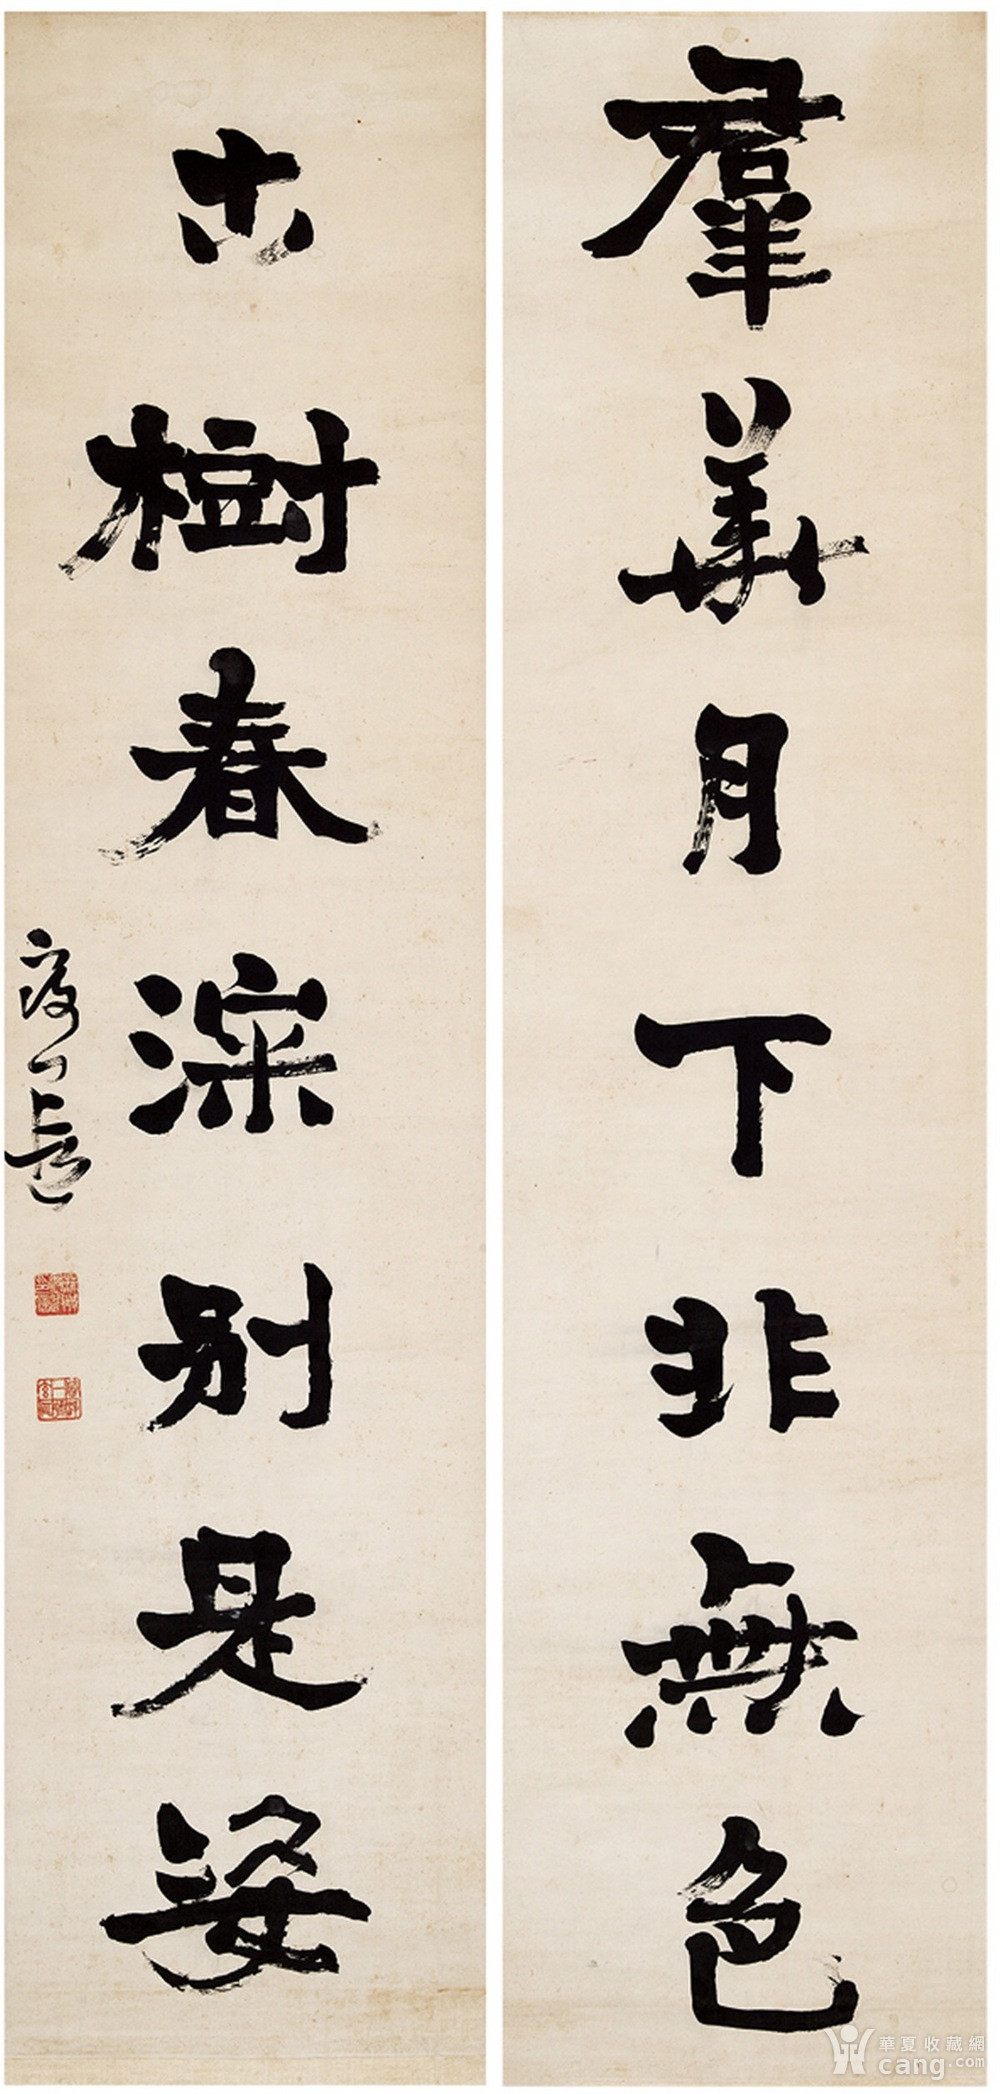 羣華月下非無色
古樹春深別是姿
華夏收藏網
cang.com